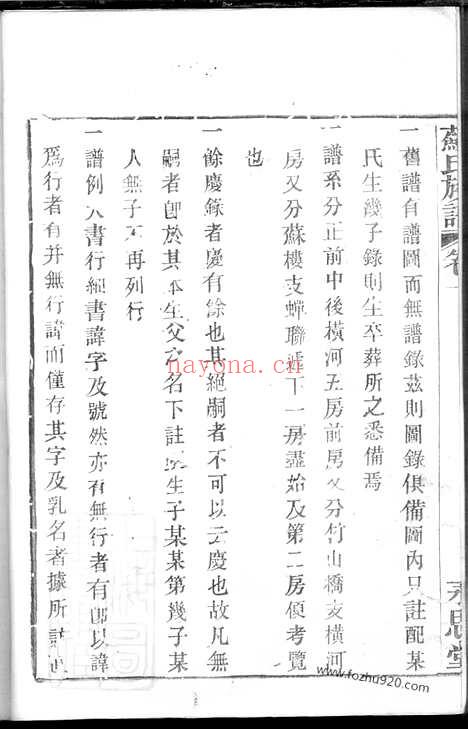 蘇氏族譜 卷一
永思堂
一舊譜有譜圖而無譜錄茲則圖錄俱備圖內只註配某
氏生幾子錄則生卒葬所之悉備焉
一譜系分正前中後橫河五房前房又分竹山橋支橫河
房又分蘇樓支蟬聯遞下一房盡始及第二房便考覽
也
一餘慶錄者慶有餘也其絕嗣者不可以云慶也故凡無
嗣者卽於其本生父之名下註所生子某某第幾子某
人無子不再列行
一譜例大書行細書諱字及號然亦有無行者有卽以諱
爲行者有并無行諱而僅存其字及乳名者據所註
nayona.cn
www.fozhu920.com